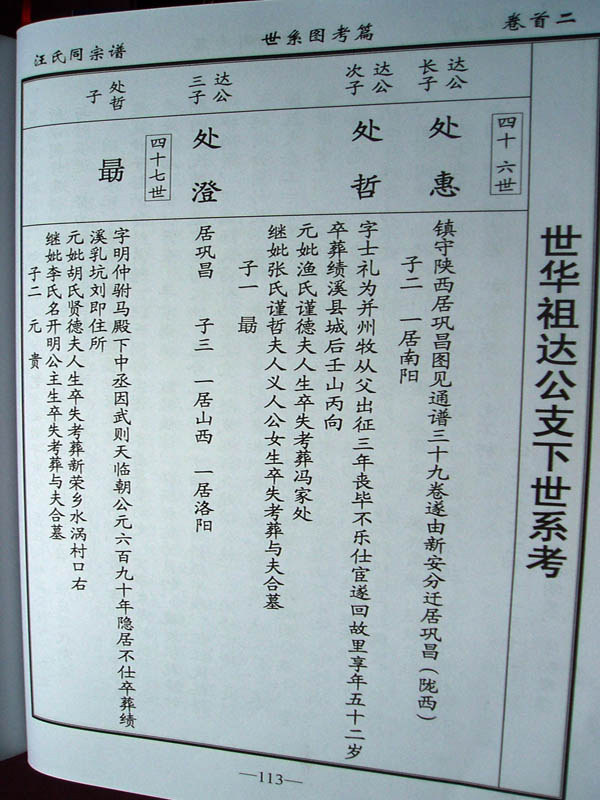 汪氏同宗谱
世系图考篇
卷首二
世华祖达公支下世系考
四十六世
达公
长子
处惠
镇守陕西居巩昌图见通谱三十九卷遂由新安分迁居巩昌（陇西）
子二 一居南阳
达公
次子
处哲
字士礼为并州牧从父出征三年丧毕不乐仕宦遂回故里享年五十二岁
卒葬绩溪县城后壬山丙向
元妣渔氏谨德夫人生卒失考葬冯家处
继妣张氏谨哲夫人义人公女生卒失考葬与夫合墓
子一 勗
达公
三子
处澄
居巩昌 子三 一居山西 一居洛阳
四十七世
处哲
子
勗
字明仲驸马殿下中丞因武则天临朝公元六百九十年隐居不仕卒葬绩
溪乳坑刘即住所
元妣胡氏贤德夫人生卒失考葬新荣乡水涡村口右
继妣李氏名开明公主生卒失考葬与夫合墓
子二 元 贵
—113—